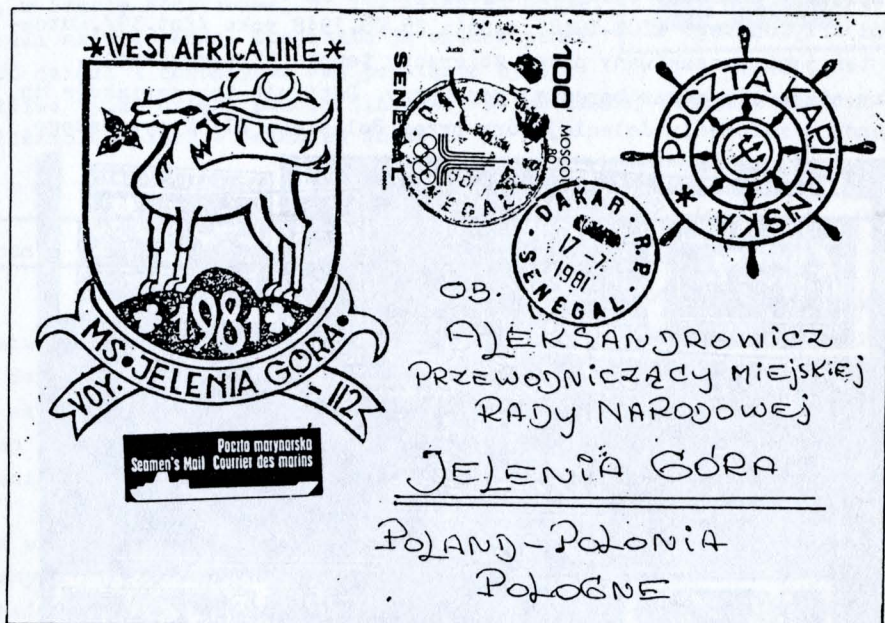 *WEST AFRICA LINE*
1981
MS. JELENIA GÓRA.
VOY. - 112
Poczta marynarska
Seamen's Mail Courrier des marins
Judo
SENEGAL
100
MOSCOU 80
DAKAR
1981
SENEGAL
POCZTA KAPITAŃSKA *
DAKAR · R.P.
17 -7.
1981
SENEGAL
OB.
ALEKSANDROWICZ
PRZEWODNICZĄCY MIEJSKIEJ
RADY NARODOWEJ
JELENIA GÓRA
POLAND - POLONIA
POLOGNE